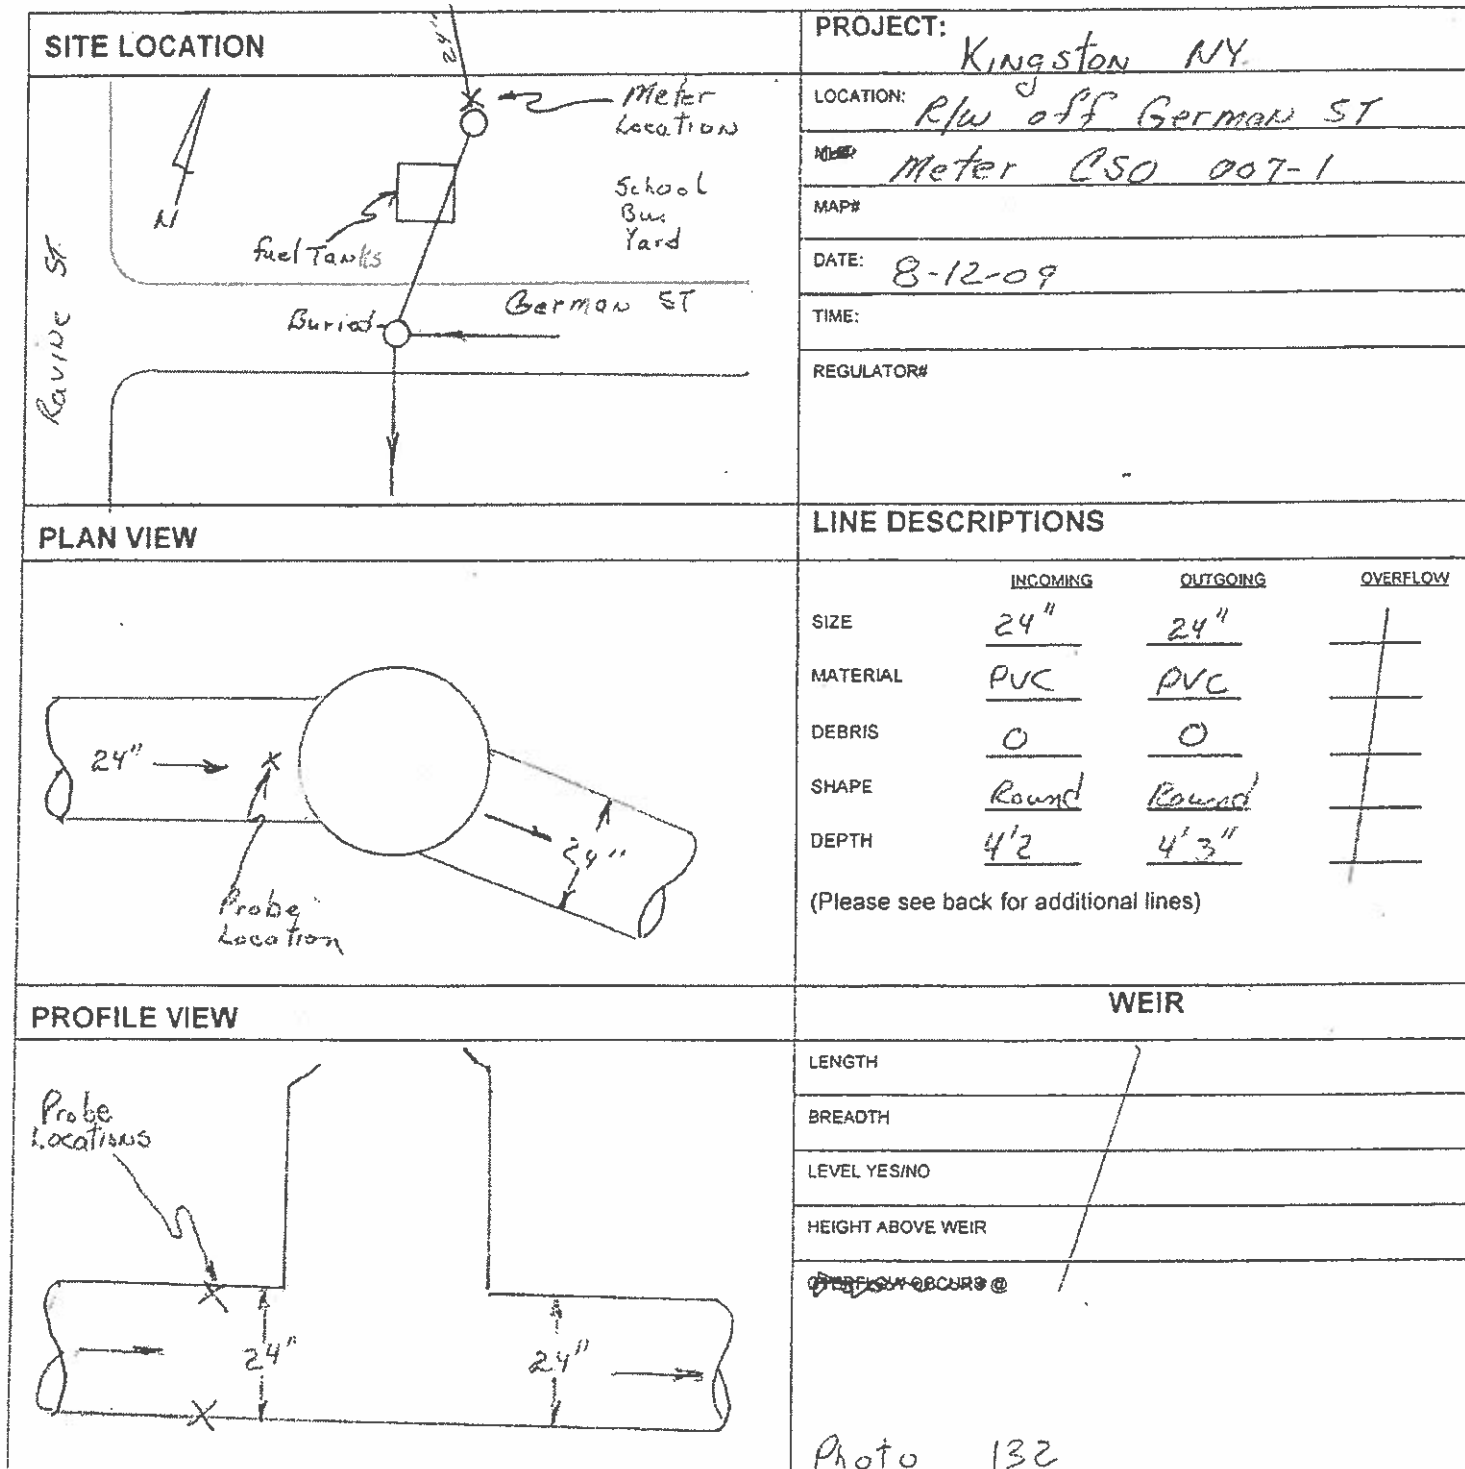 SITE LOCATION
24"
Meter
Location
N
School
Bus
Yard
fuel Tanks
German ST
Buried
Ravine St.
PROJECT: Kingston NY.
LOCATION: R/W off German ST
Meter CSO 007-1
MAP#
DATE: 8-12-09
TIME:
REGULATOR#
PLAN VIEW
24"
24"
Probe
Location
LINE DESCRIPTIONS
INCOMING OUTGOING OVERFLOW
SIZE 24" 24"
MATERIAL PVC PVC
DEBRIS 0 0
SHAPE Round Round
DEPTH 4'2 4'3"
(Please see back for additional lines)
PROFILE VIEW
Probe
Locations
24"
24"
WEIR
LENGTH
BREADTH
LEVEL YES/NO
HEIGHT ABOVE WEIR
OVERFLOW OCCURS @
Photo 132